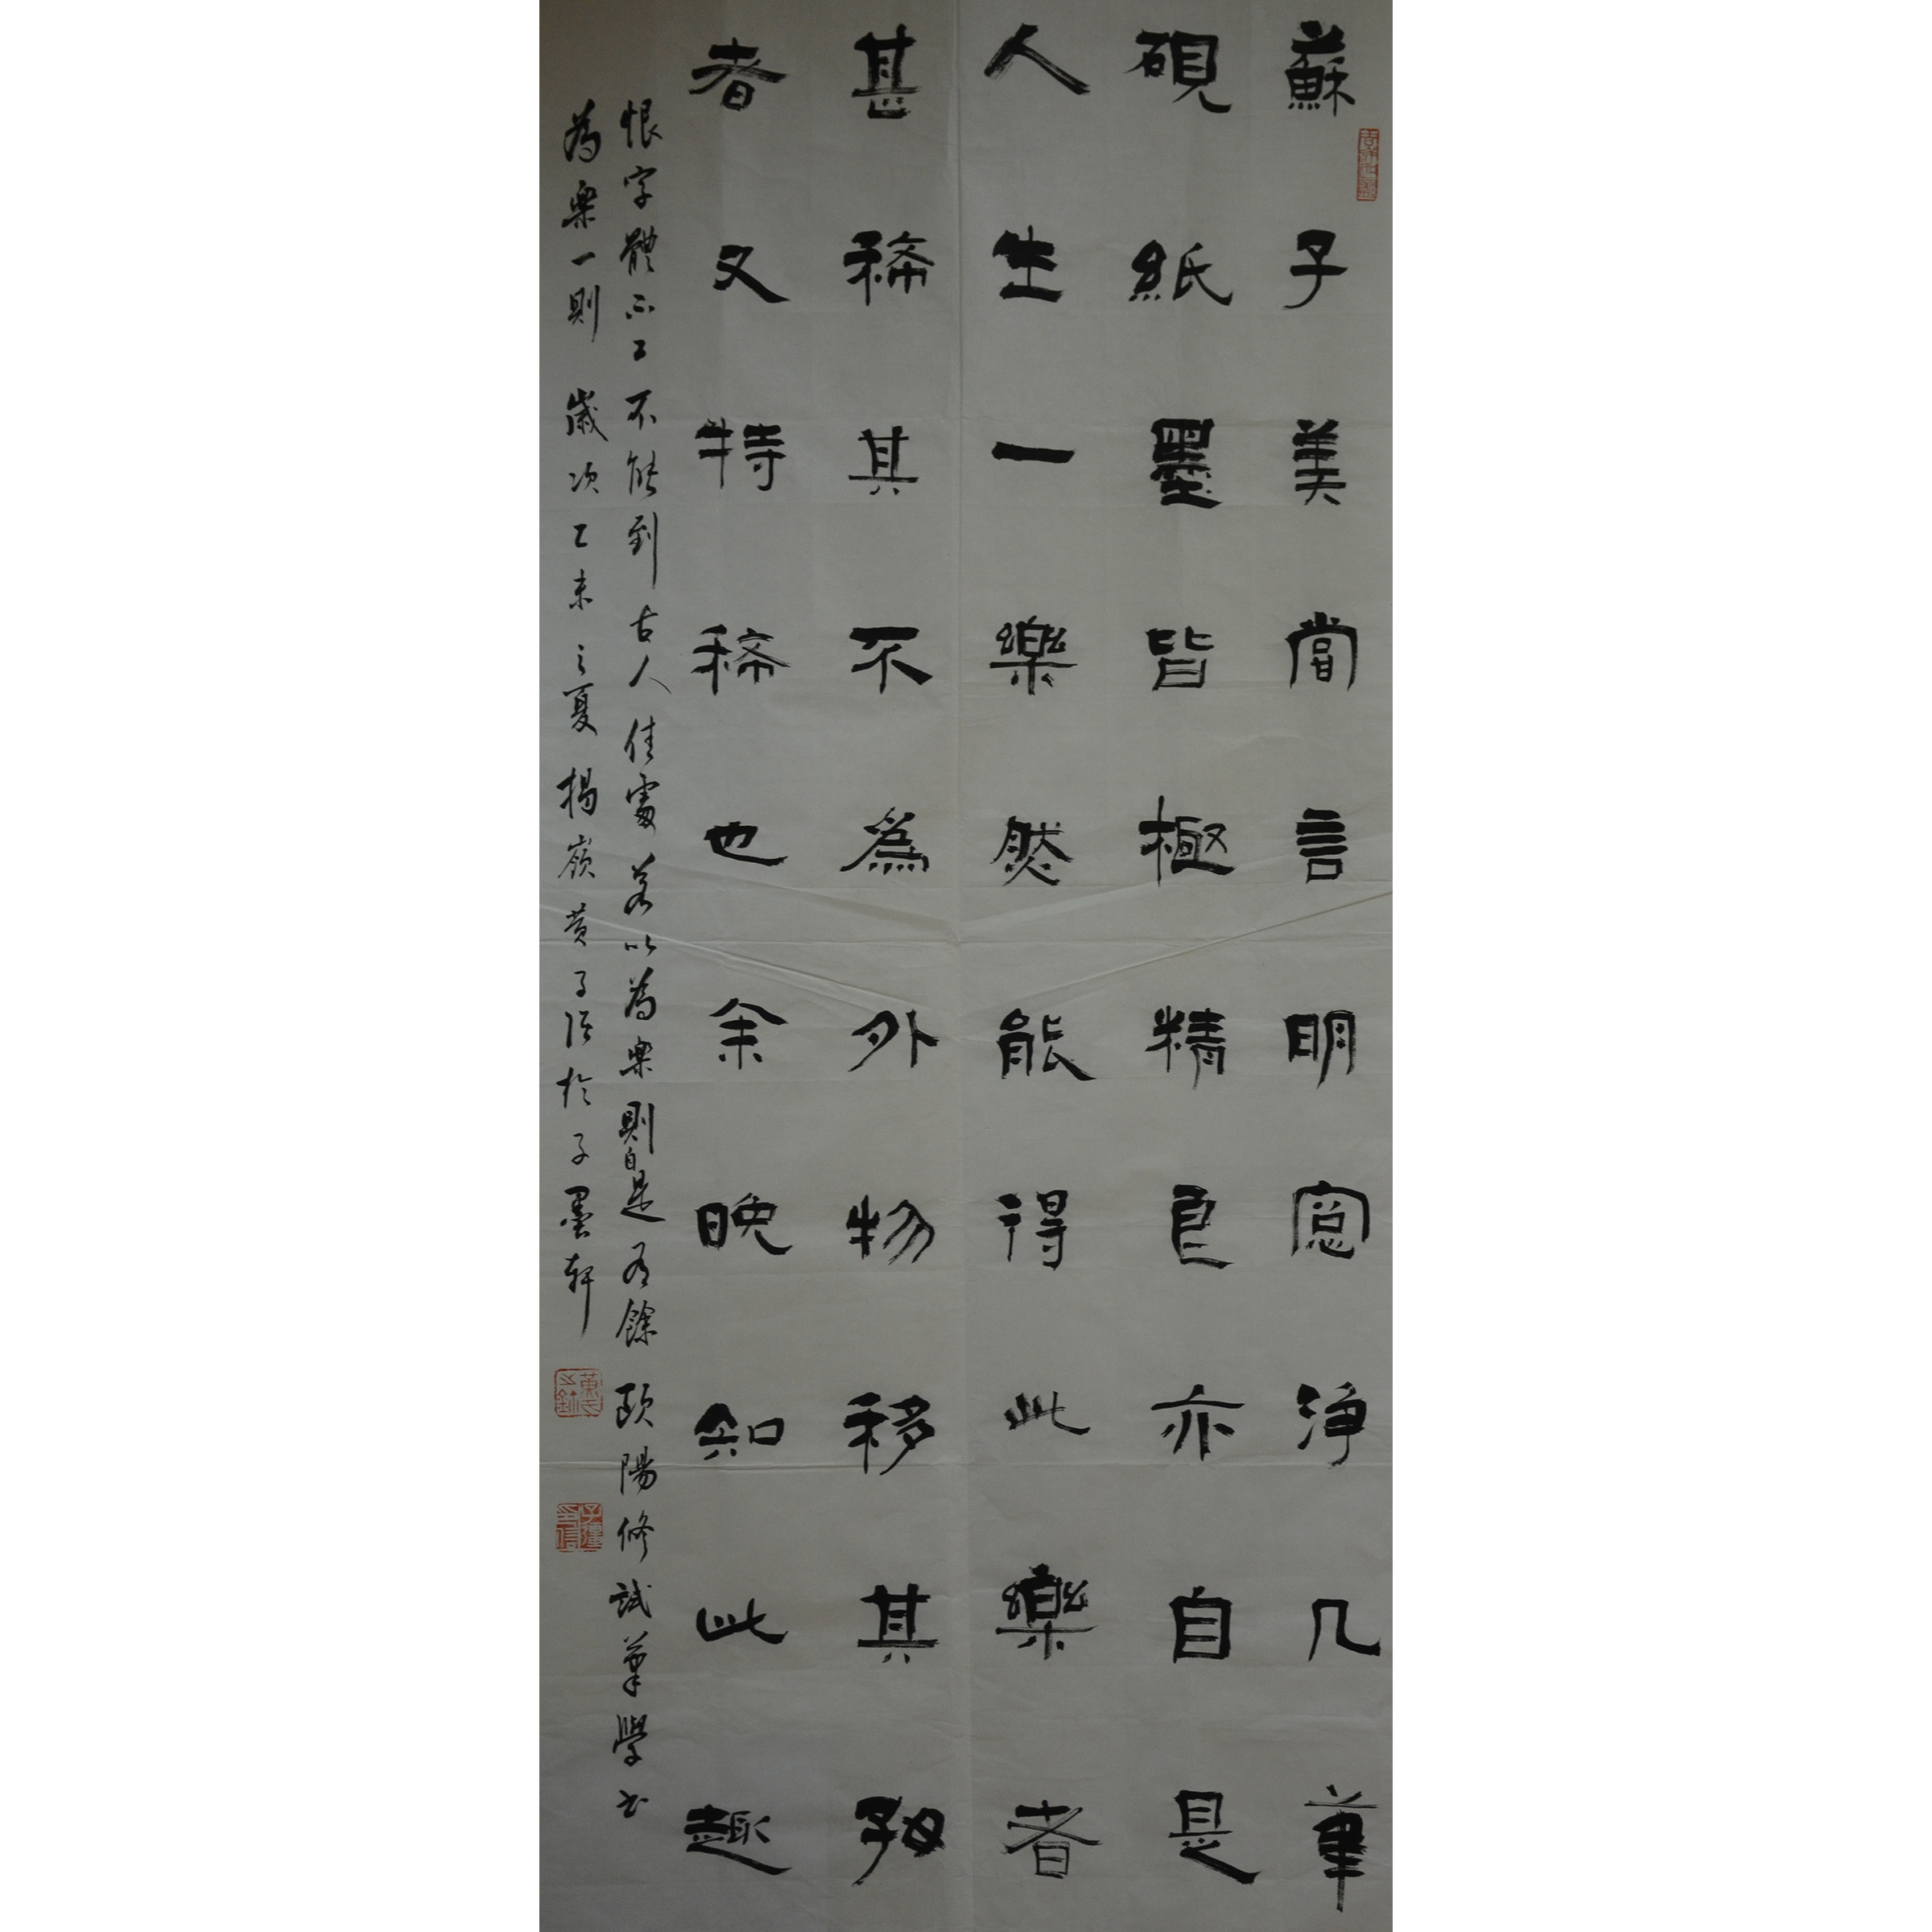 蘇子美嘗言明窓淨几筆
硯紙墨皆極精良亦自是
人生一樂然能得此樂者
甚稀其不爲外物移其好
者又特稀也余晚知此趣
恨字體不工不能到古人佳處若以為樂則自是有餘 歐陽修試筆學書
為樂一則 歲次乙未之夏 揭嶺黄子於子墨軒